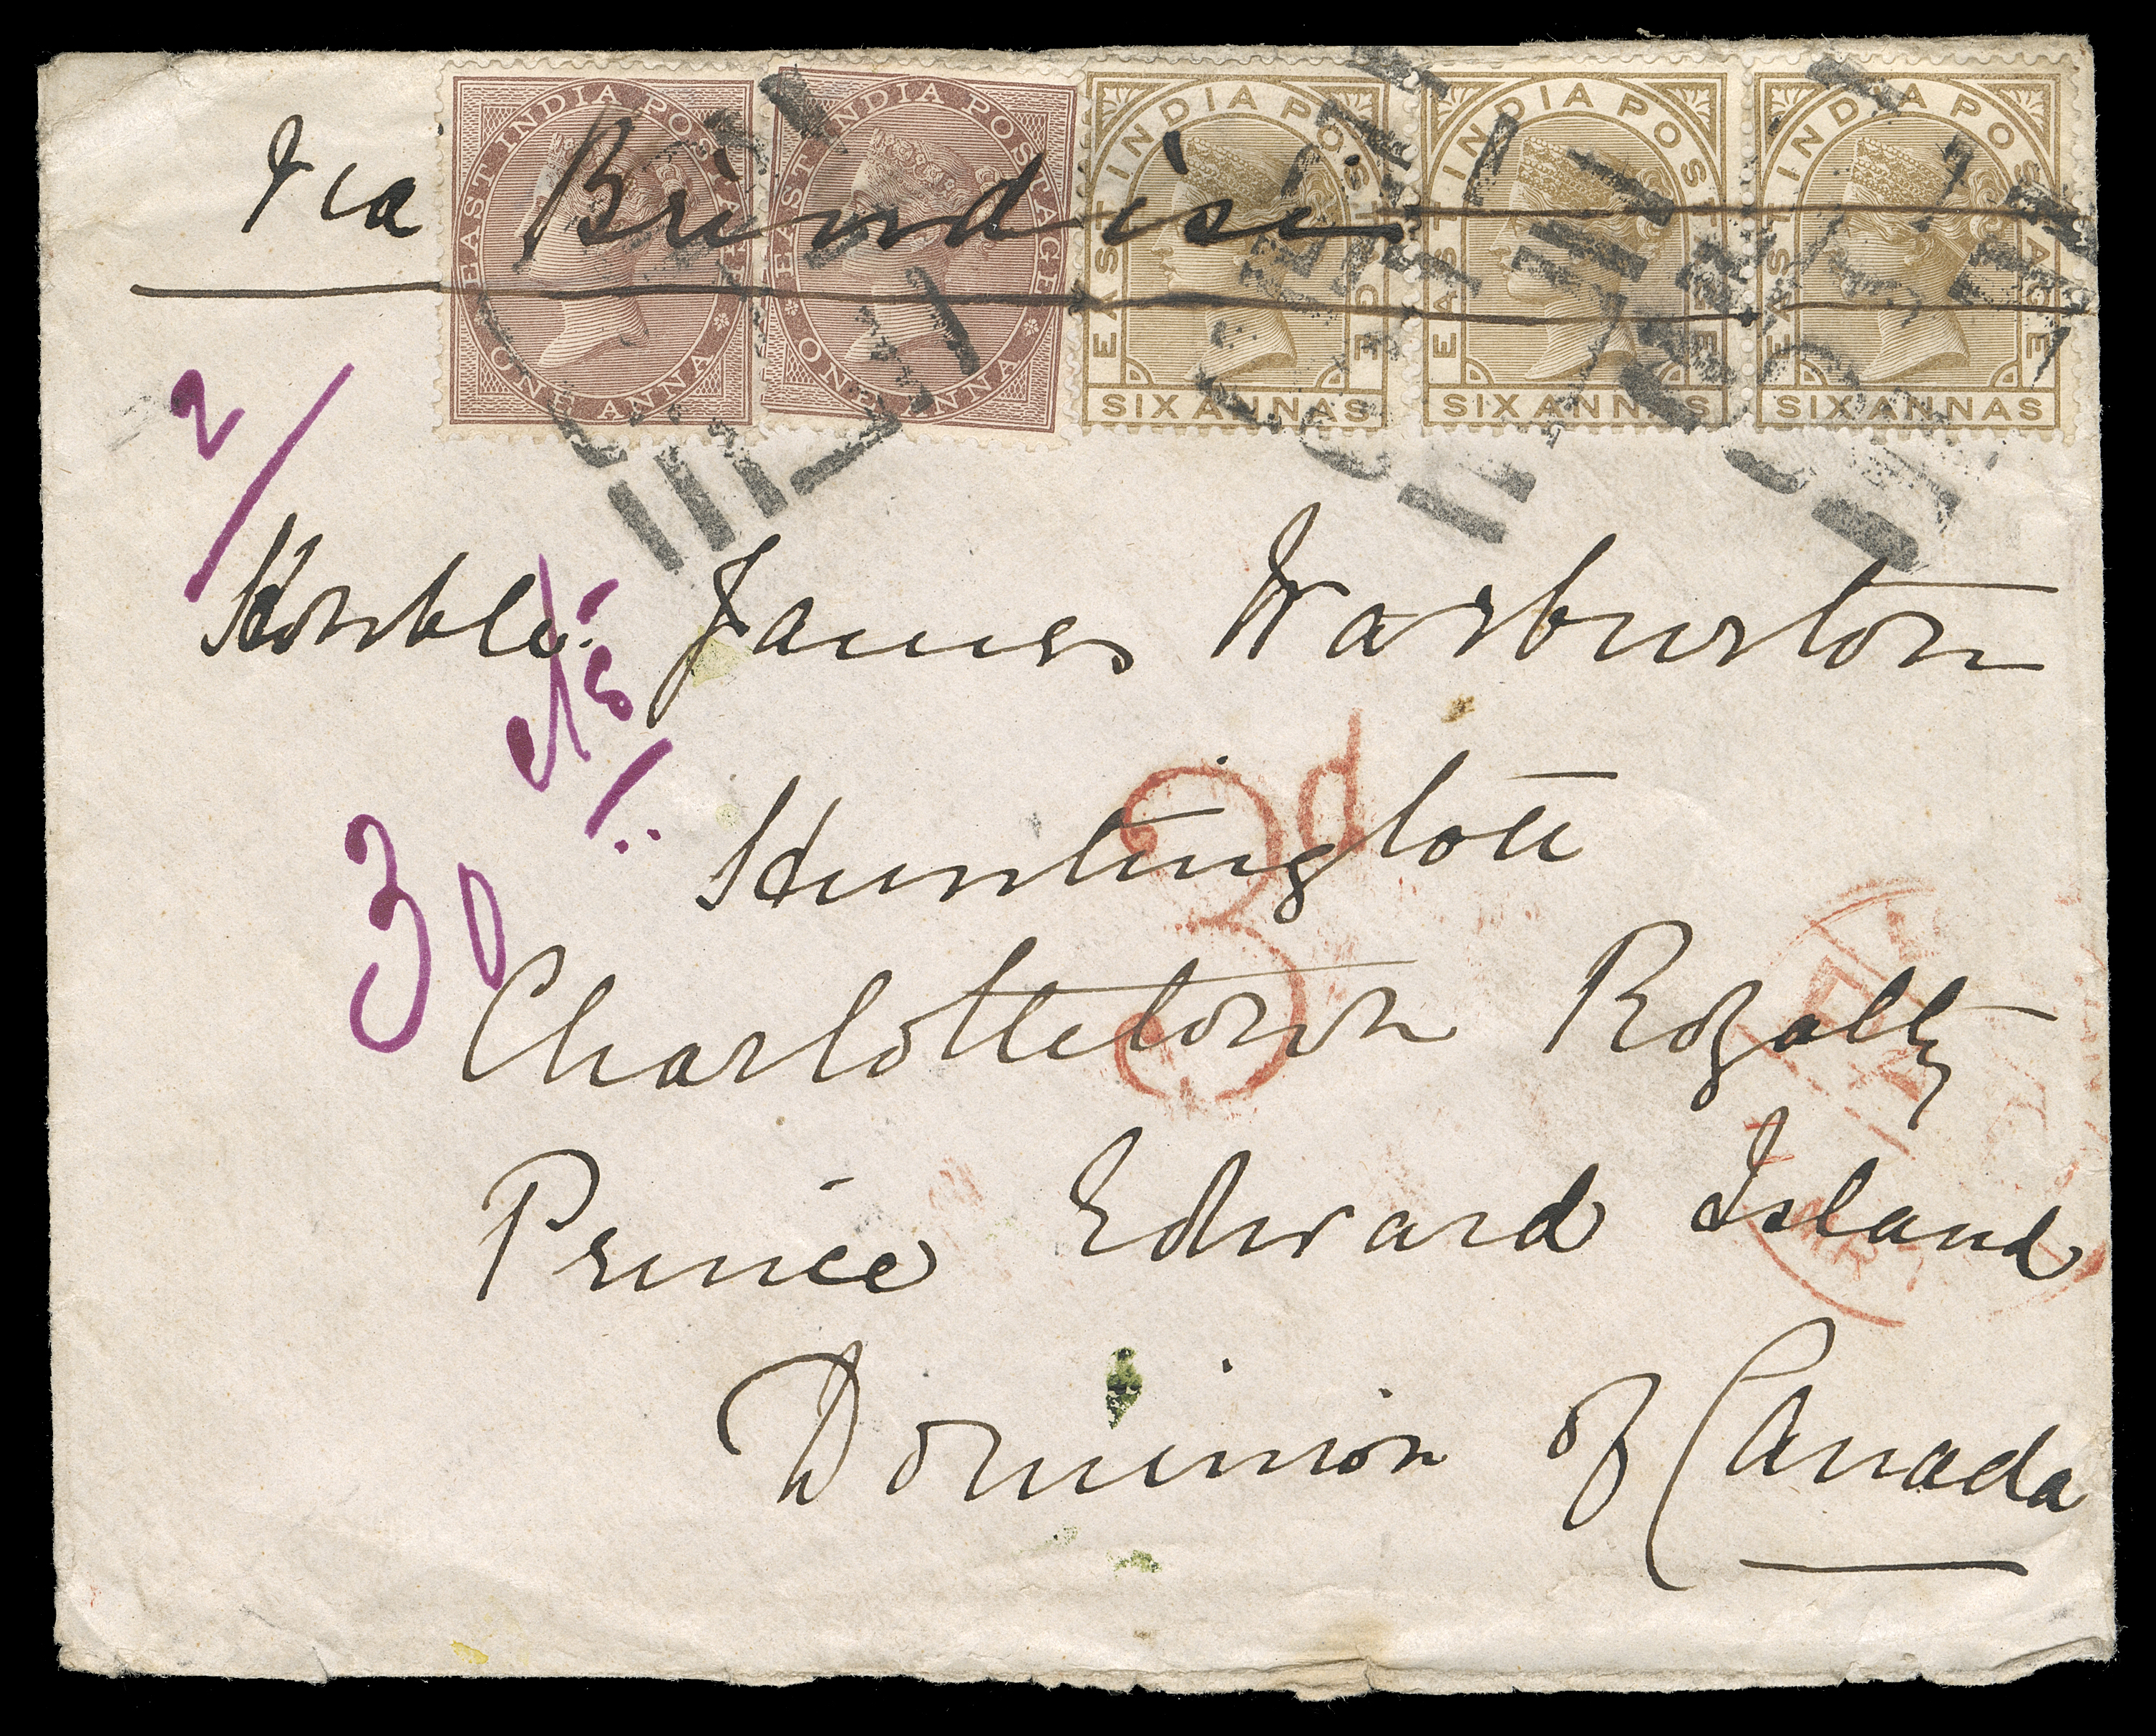 Via Brindisi
EAST INDIA POSTAGE
ONE ANNA
EAST INDIA POSTAGE
ONE ANNA
EAST INDIA POSTAGE
SIX ANNAS
EAST INDIA POSTAGE
SIX ANNAS
EAST INDIA POSTAGE
SIX ANNAS
2/
Honble. James Warburton
30 cts
3d
Huntington
Charlottetown Royalty
3
Prince Edward Island
Dominion of Canada